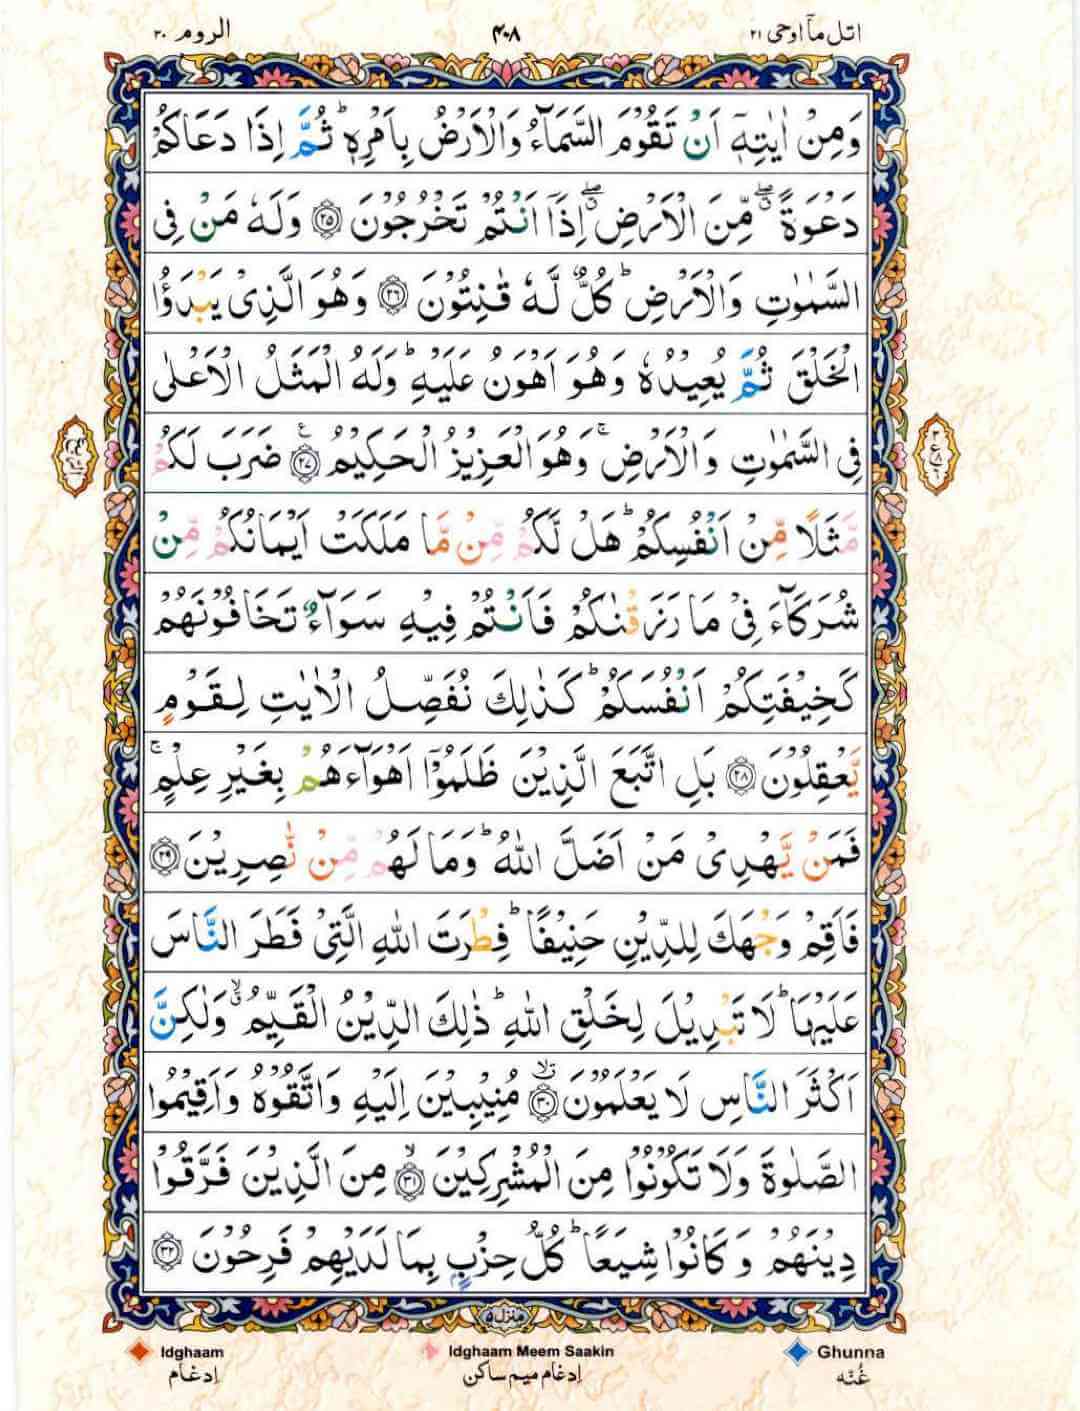 اتل مآ اوحی ٢١
٤٠٨
الروم ٣٠
وَمِنْ اٰيٰتِهٖۤ اَنْ تَقُوْمَ السَّمَآءُ وَالْاَرْضُ بِاَمْرِهٖ ؕ ثُمَّ اِذَا دَعَاكُمْ
دَعْوَةً ۖۗ مِّنَ الْاَرْضِ ۖۗ اِذَاۤ اَنْتُمْ تَخْرُجُوْنَ ﴿٢٥﴾ وَلَهٗ مَنْ فِى
السَّمٰوٰتِ وَالْاَرْضِ ؕ كُلٌّ لَّهٗ قٰنِتُوْنَ ﴿٢٦﴾ وَهُوَ الَّذِىْ يَبْدَؤُا
الْخَلْقَ ثُمَّ يُعِيْدُهٗ وَهُوَ اَهْوَنُ عَلَيْهِ ؕ وَلَهُ الْمَثَلُ الْاَعْلٰى
فِى السَّمٰوٰتِ وَالْاَرْضِ ۚ وَهُوَ الْعَزِيْزُ الْحَكِيْمُ ﴿٢٧﴾ ضَرَبَ لَكُمْ
مَّثَلًا مِّنْ اَنْفُسِكُمْ ؕ هَلْ لَّكُمْ مِّنْ مَّا مَلَكَتْ اَيْمَانُكُمْ مِّنْ
شُرَكَآءَ فِىْ مَا رَزَقْنٰكُمْ فَاَنْتُمْ فِيْهِ سَوَآءٌ تَخَافُوْنَهُمْ
كَخِيْفَتِكُمْ اَنْفُسَكُمْ ؕ كَذٰلِكَ نُفَصِّلُ الْاٰيٰتِ لِقَوْمٍ
يَّعْقِلُوْنَ ﴿٢٨﴾ بَلِ اتَّبَعَ الَّذِيْنَ ظَلَمُوْۤا اَهْوَآءَهُمْ بِغَيْرِ عِلْمٍ ۚ
فَمَنْ يَّهْدِىْ مَنْ اَضَلَّ اللّٰهُ ؕ وَمَا لَهُمْ مِّنْ نّٰصِرِيْنَ ﴿٢٩﴾
فَاَقِمْ وَجْهَكَ لِلدِّيْنِ حَنِيْفًا ؕ فِطْرَتَ اللّٰهِ الَّتِىْ فَطَرَ النَّاسَ
عَلَيْهَا ؕ لَا تَبْدِيْلَ لِخَلْقِ اللّٰهِ ؕ ذٰلِكَ الدِّيْنُ الْقَيِّمُ ۙ وَلٰكِنَّ
اَكْثَرَ النَّاسِ لَا يَعْلَمُوْنَ ﴿٣٠﴾ مُنِيْبِيْنَ اِلَيْهِ وَاتَّقُوْهُ وَاَقِيْمُوا
الصَّلٰوةَ وَلَا تَكُوْنُوْا مِنَ الْمُشْرِكِيْنَ ﴿٣١﴾ مِنَ الَّذِيْنَ فَرَّقُوْا
دِيْنَهُمْ وَ كَانُوْا شِيَعًا ؕ كُلُّ حِزْبٍ بِمَا لَدَيْهِمْ فَرِحُوْنَ ﴿٣٢﴾
منزل ٥
Idghaam
Idghaam Meem Saakin
Ghunna
اِدغَام
اِدغام میم ساکن
غُنّه